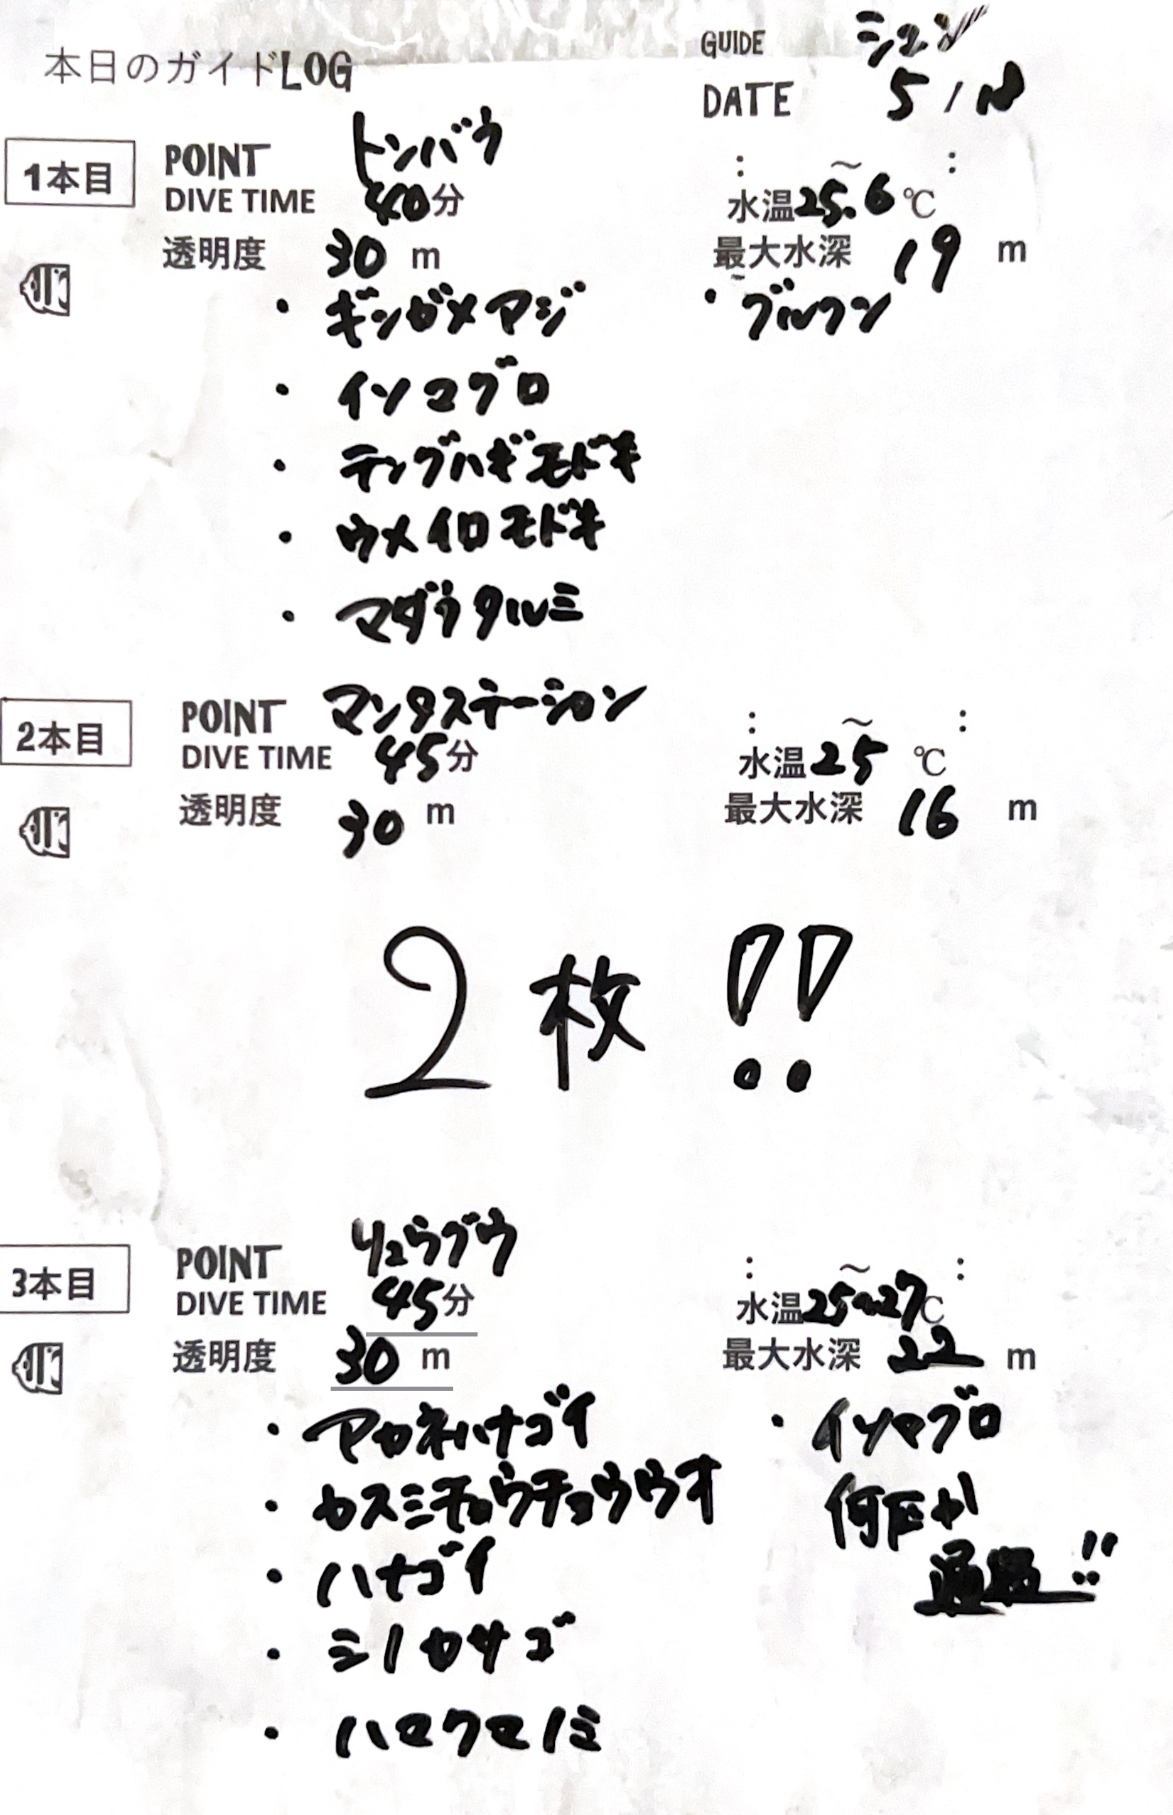 本日のガイドLOG
GUIDE シュン
DATE 5/18
1本目
POINT トンバラ
DIVE TIME 40分
: ～ :
水温25.6℃
透明度 30 m
最大水深 19 m
・ギンガメアジ
・グルクン
・イソマグロ
・テングハギモドキ
・ウメイロモドキ
・マダラタルミ
2本目
POINT マンタステーション
DIVE TIME 45分
: ～ :
水温25 ℃
透明度 30 m
最大水深 16 m
2枚!!
3本目
POINT リュウグウ
DIVE TIME 45分
: ～ :
水温25~27℃
透明度 30 m
最大水深 22 m
・アカネハナゴイ
・イソマグロ
・カスミチョウチョウウオ
何匹か
・ハナゴイ
通過!!
・ミノカサゴ
・ハマクマノミ